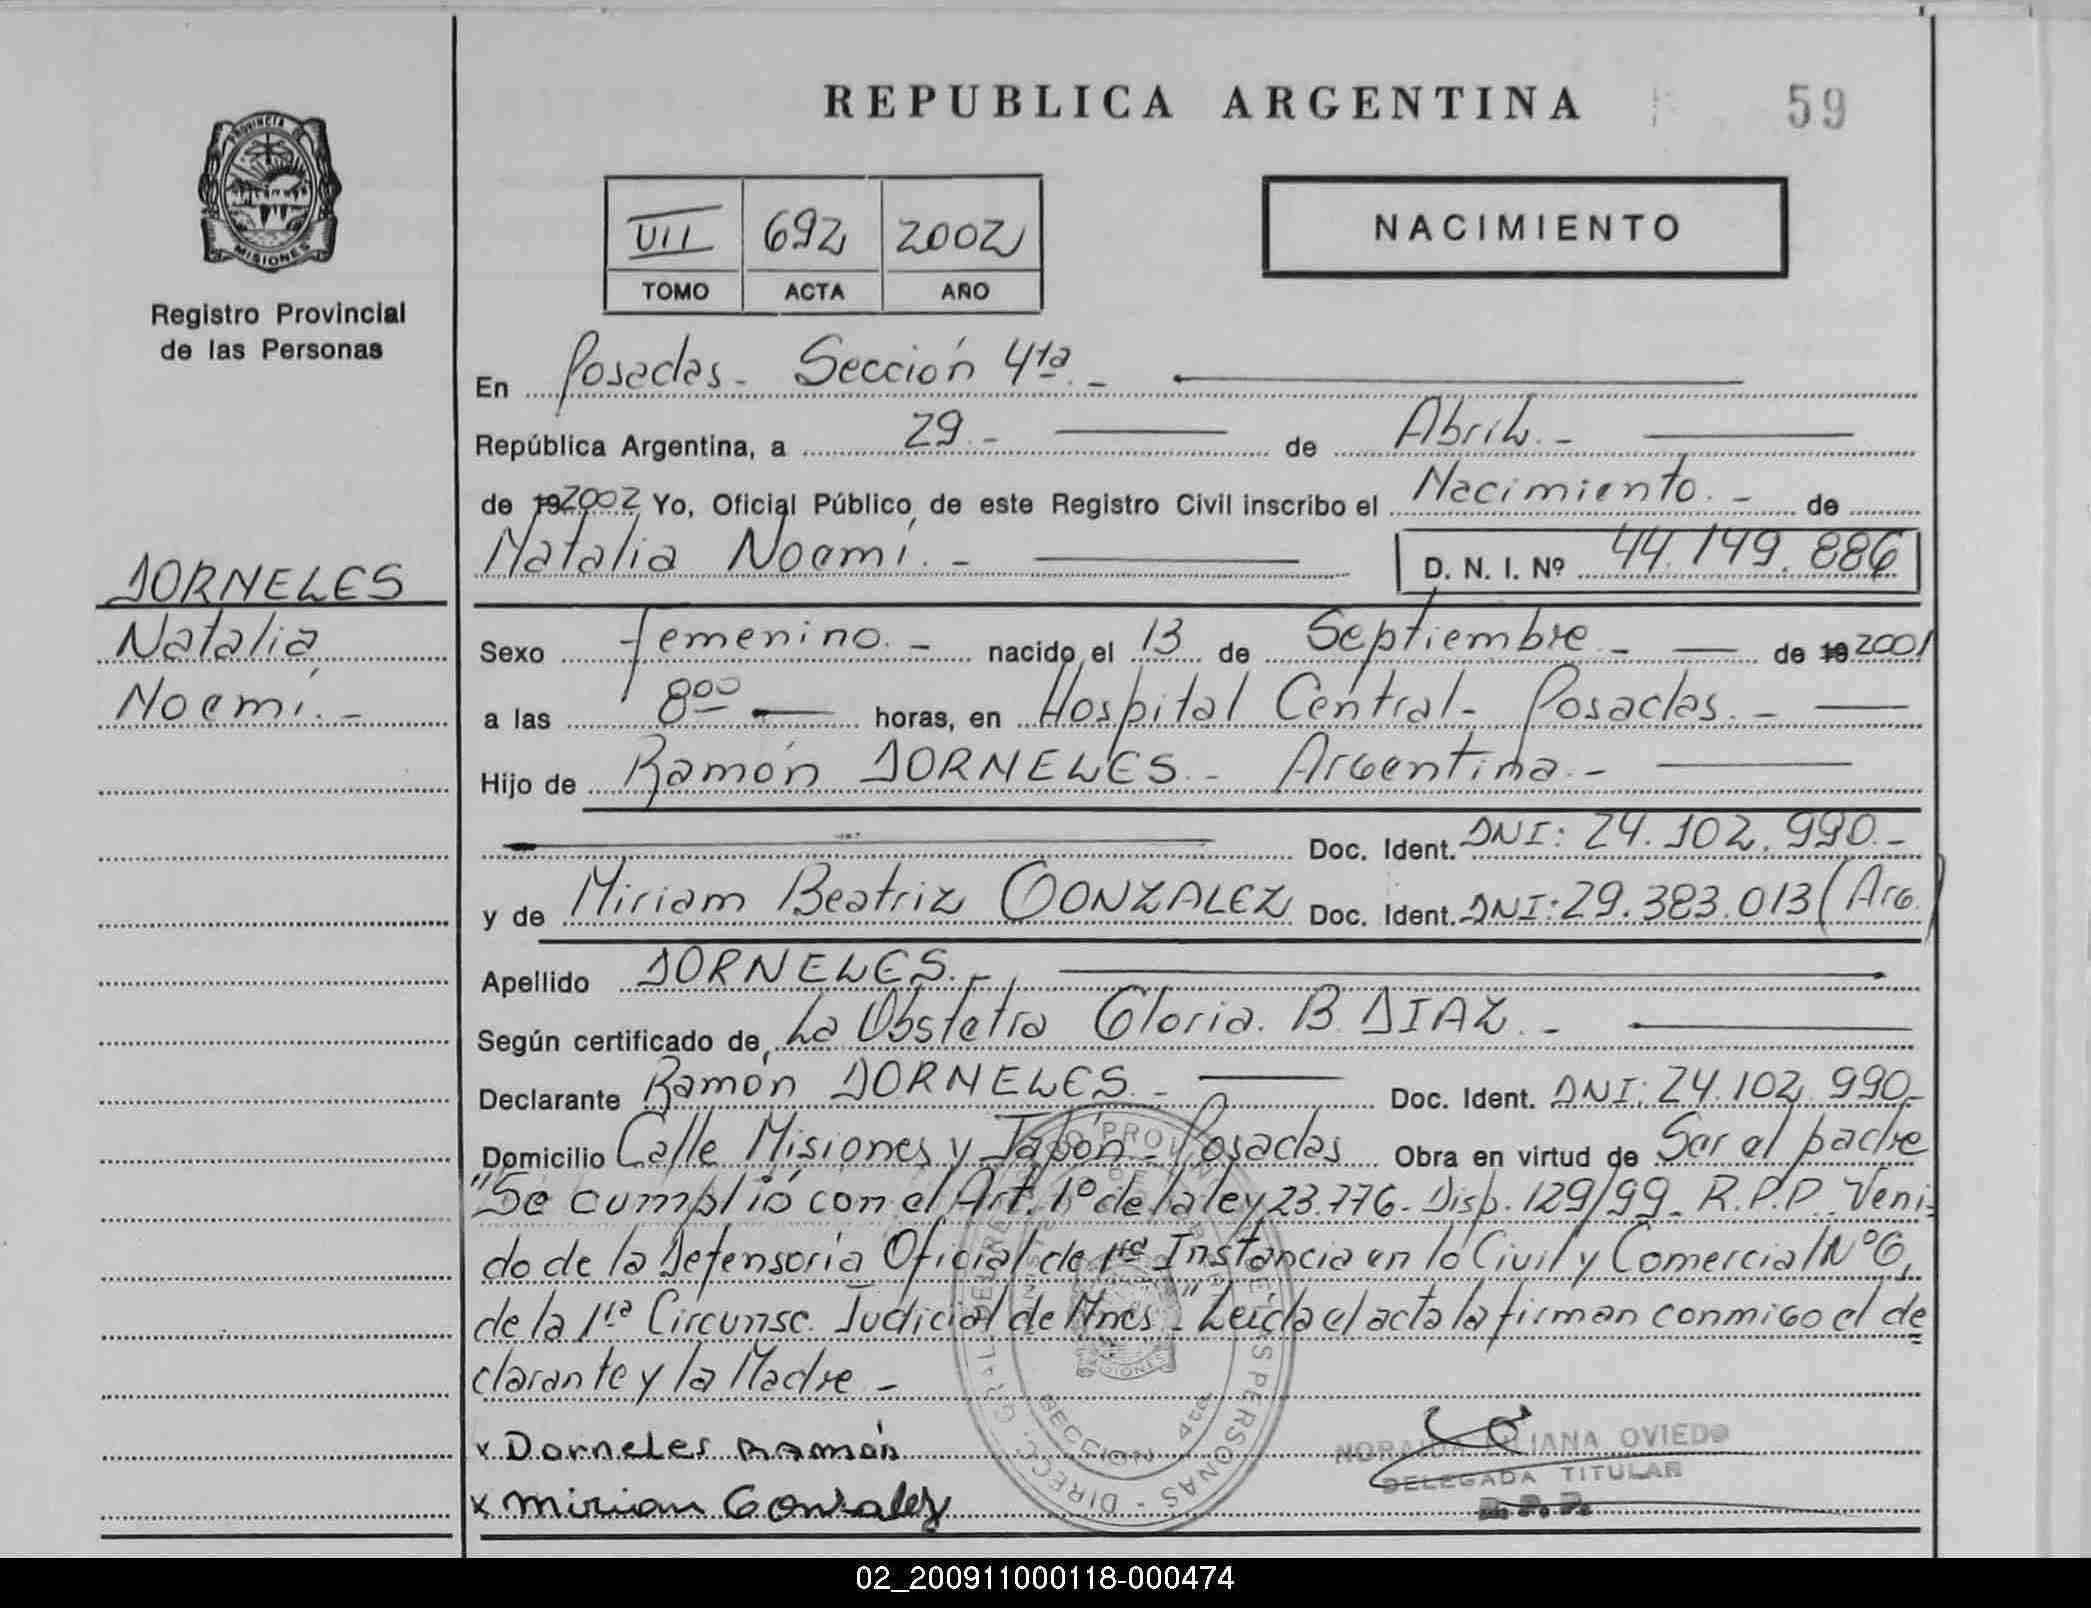 REPUBLICA ARGENTINA
59
PROVINCIA DE
MISIONES
Registro Provincial
de las Personas
VII 692 2002
TOMO ACTA AÑO
NACIMIENTO
En Posadas - Sección 4ta. -
República Argentina, a 29 - de Abril. -
de 19 2002 Yo, Oficial Público de este Registro Civil inscribo el Nacimiento. - de
Natalia Noemí. - D. N. I. Nº 44.149.886
DORNELES
Natalia
Noemí. -
Sexo femenino. - nacido el 13 de Septiembre - de 19 2001
a las 800 horas, en Hospital Central - Posadas. -
Hijo de Ramón DORNELES. - Argentina. -
Doc. Ident. DNI: 24.102.990. -
y de Miriam Beatriz GONZALEZ Doc. Ident. DNI: 29.383.013 (Arg.)
Apellido DORNELES. -
Según certificado de La Obstetra Gloria. B. DIAZ. -
Declarante Ramón DORNELES. - Doc. Ident. DNI: 24.102.990 -
Domicilio Calle Misiones y Japón - Posadas Obra en virtud de Ser el padre
"Se cumplió con el Art. 1º de la ley 23.776 - Disp. 129/99 - R.P.P. Veni-
do de la Defensoría Oficial de 1ra Instancia en lo Civil y Comercial Nº 6,
de la 1ra Circunsc. Judicial de Mnes." - Leída el acta la firman conmigo el de
clarante y la Madre -
x Dorneles Ramón
x Mirian Gonzalez
LILIANA OVIEDO
DELEGADA TITULAR
R. P. P.
SECCION 4ta
02_200911000118-000474